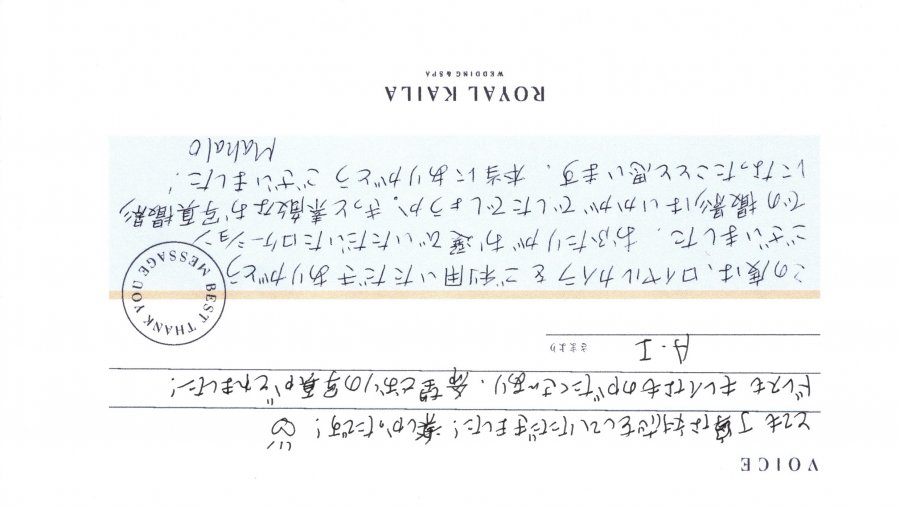 VOICE
とても丁寧な対応をしていただきました！楽しかったです！
ドレスもキレイなものがたくさんあり、希望どおりの写真がとれました！
A・I さまより
BEST THANK YOU MESSAGE
この度は、ロイヤルカイラをご利用いただきありがとう
ございました。おふたりがお選びいただいたロケーション
での撮影はいかがでしたでしょうか。きっと素敵なお写真撮影
になったことと思います。本当にありがとうございました！
Mahalo
ROYAL KAILA
WEDDING & SPA